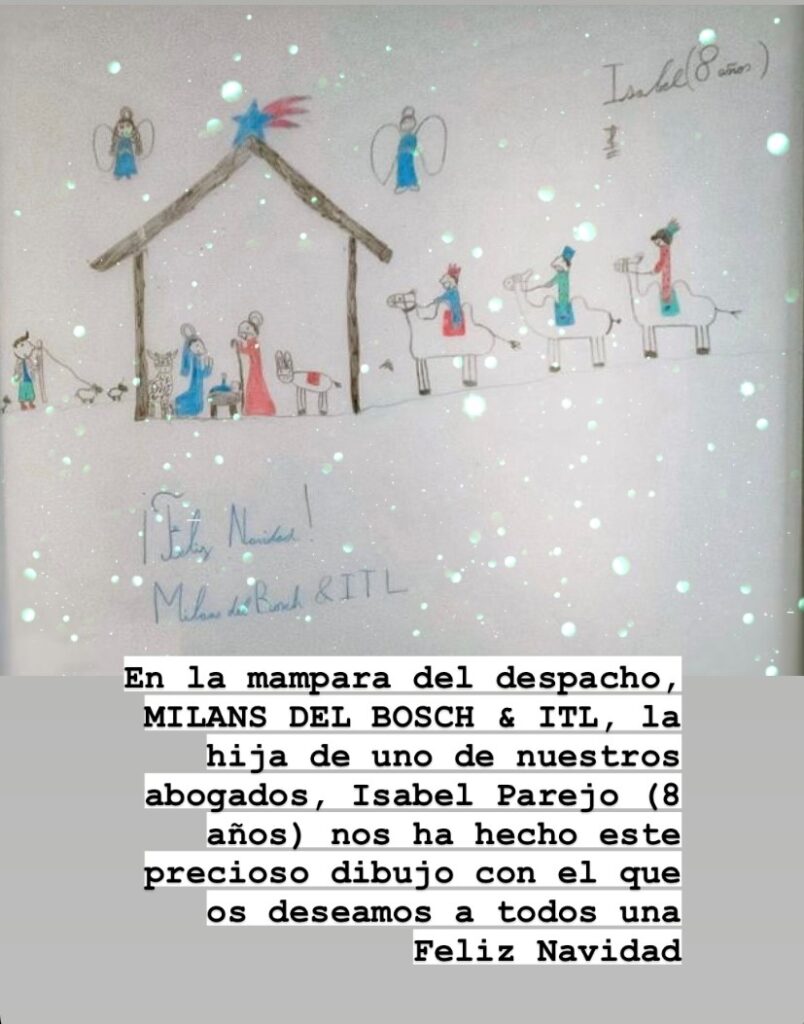 Isabel (8 años)
¡Feliz Navidad!
Milans del Bosch & ITL
En la mampara del despacho,
MILANS DEL BOSCH & ITL, la
hija de uno de nuestros
abogados, Isabel Parejo (8
años) nos ha hecho este
precioso dibujo con el que
os deseamos a todos una
Feliz Navidad